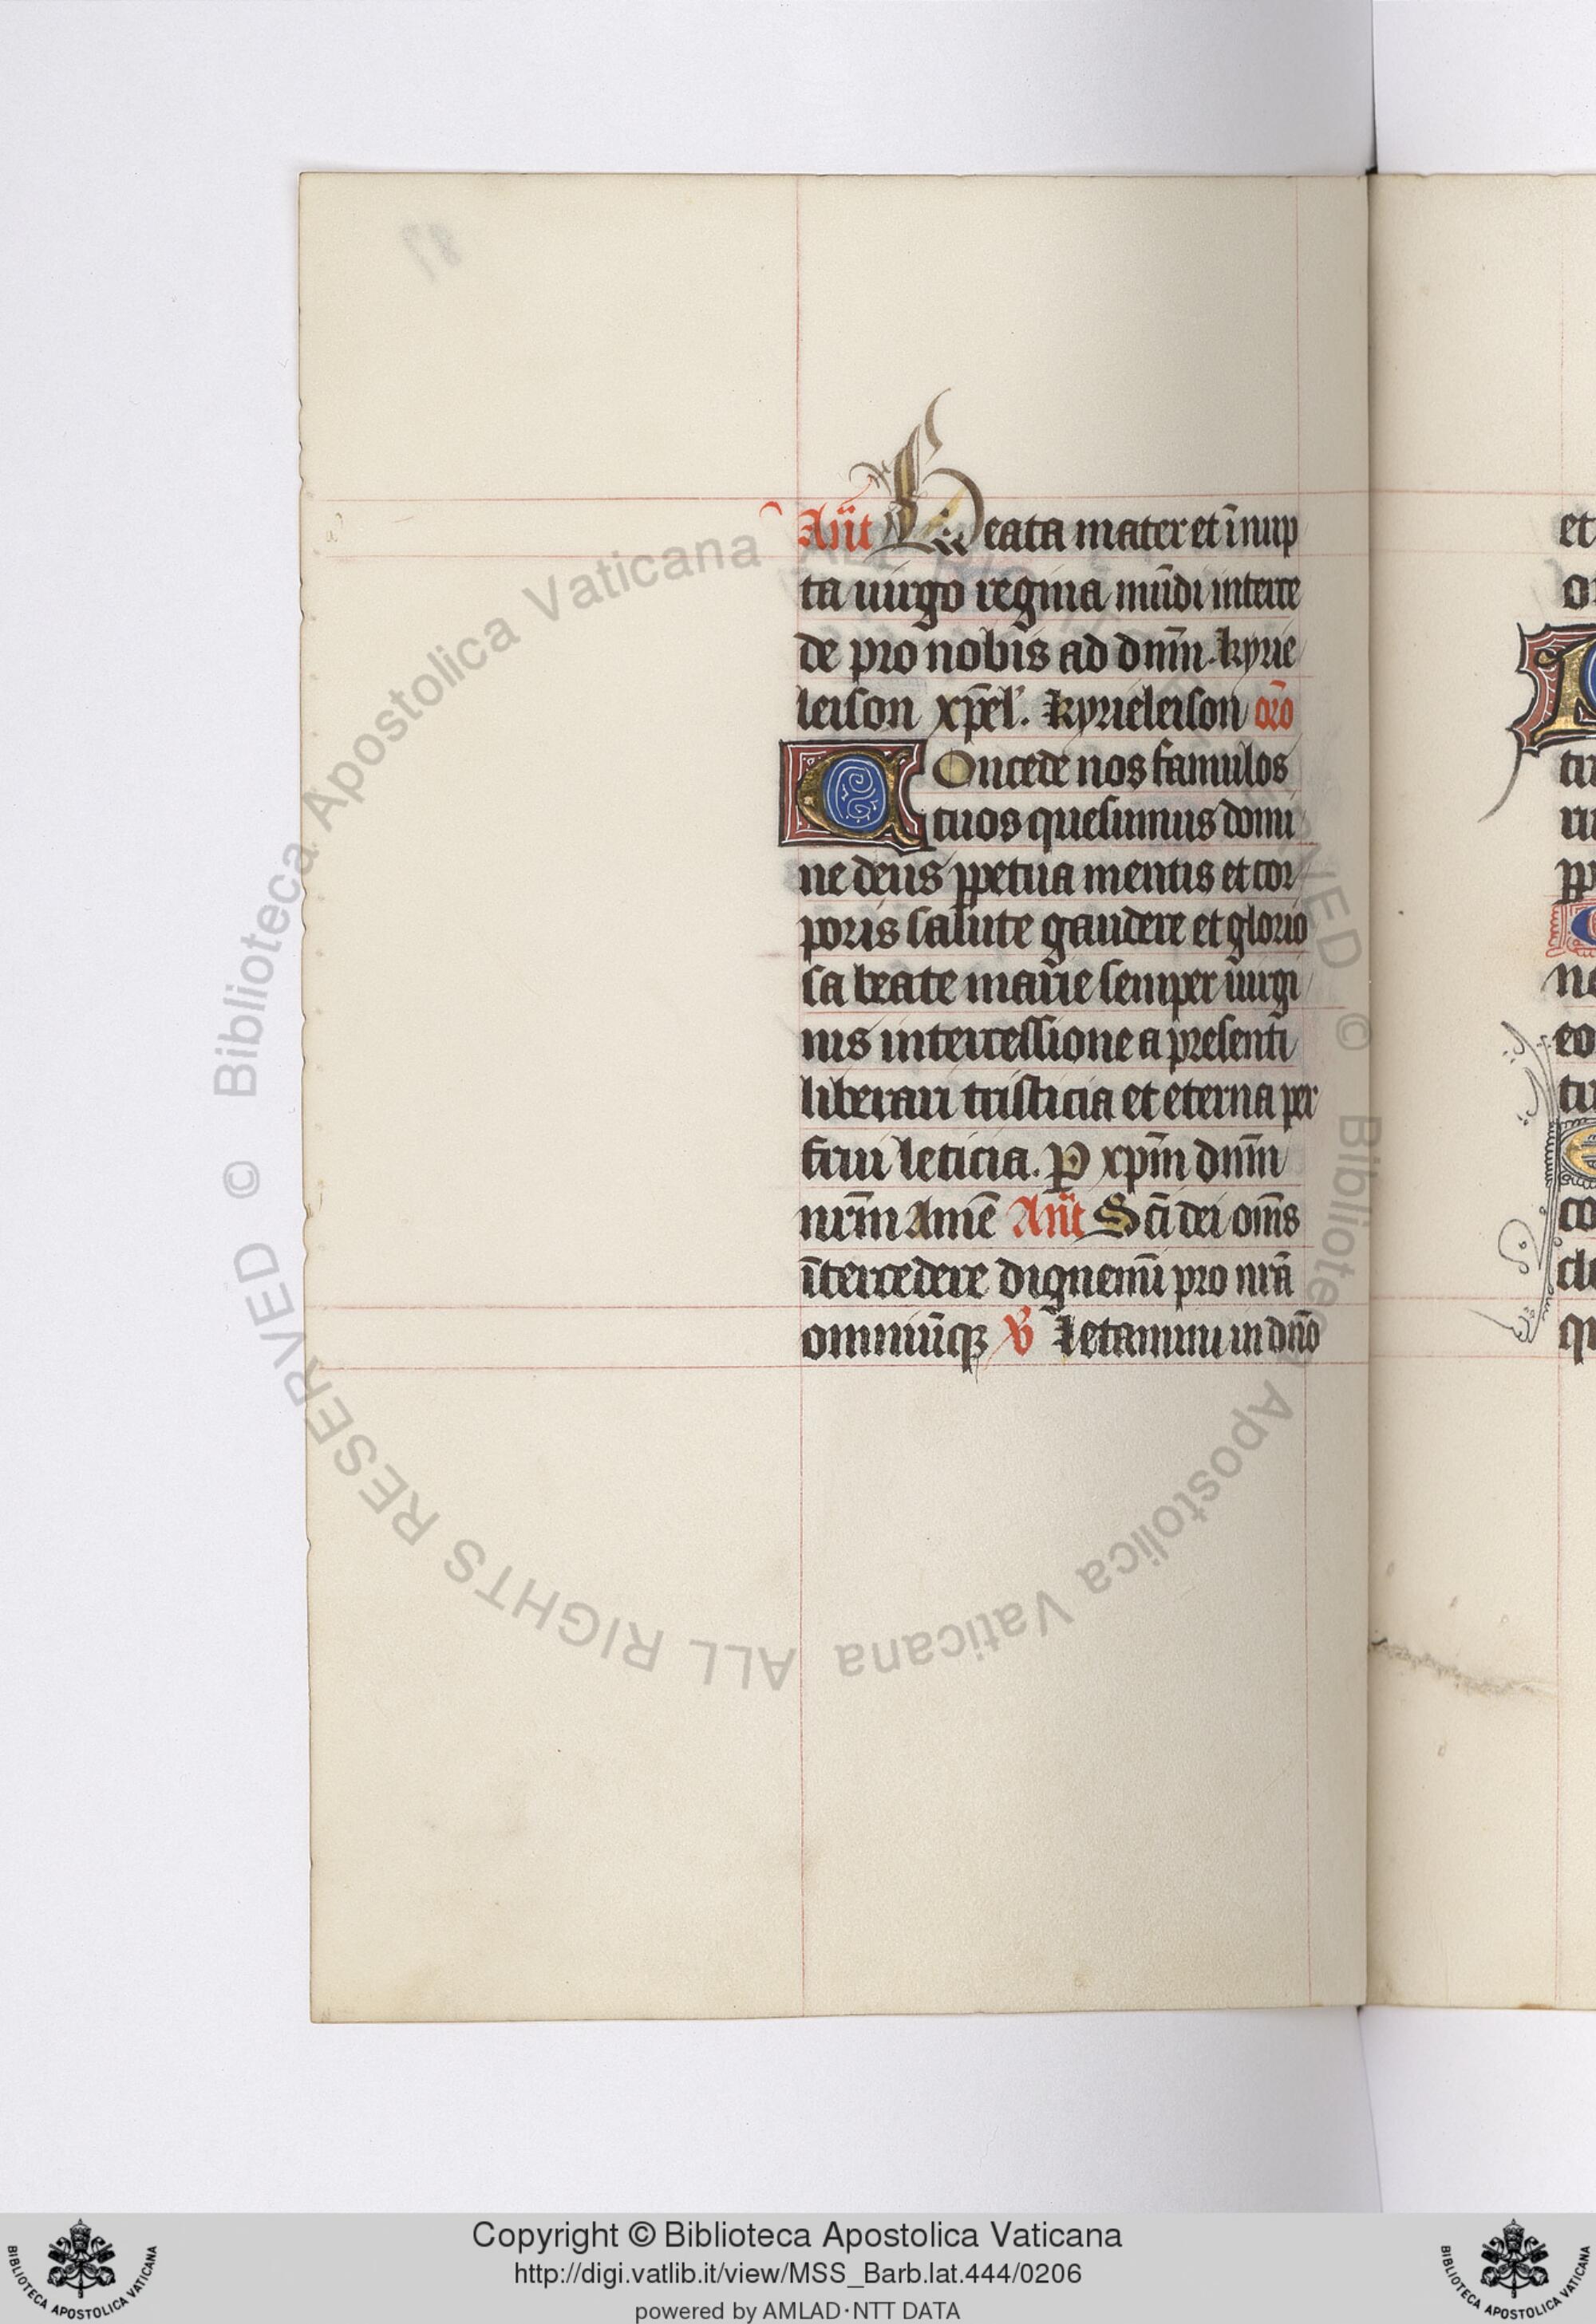 Añt Beata mater et īnup
ta uirgo regina mūdi interce
de pro nobis ad dn̄m. kyrie
leison xp̄el'. Kyrieleison or̄o
COncede nos famulos
tuos quesumus domi
ne deus ꝑpetua mentis et cor
poris salute gaudere et glorio
sa beate marie semper uirgi
nis intercessione a presenti
liberari tristicia et eterna per
frui leticia. P xp̄m dn̄m
nr̄m Amē Añt Sc̄i dei om̄s
ītercedere dignemī pro nr̄a
omniūqꝫ ℣ Letamini in dn̄o
et
tu
ꝑp
ne
eo
tu
co
cle
qu
© Biblioteca Apostolica Vaticana ALL RIGHTS RESERVED © Biblioteca Apostolica Vaticana ALL RIGHTS RESERVED
Copyright © Biblioteca Apostolica Vaticana
http://digi.vatlib.it/view/MSS_Barb.lat.444/0206
powered by AMLAD·NTT DATA
BIBLIOTECA APOSTOLICA VATICANA
BIBLIOTECA APOSTOLICA VATICANA